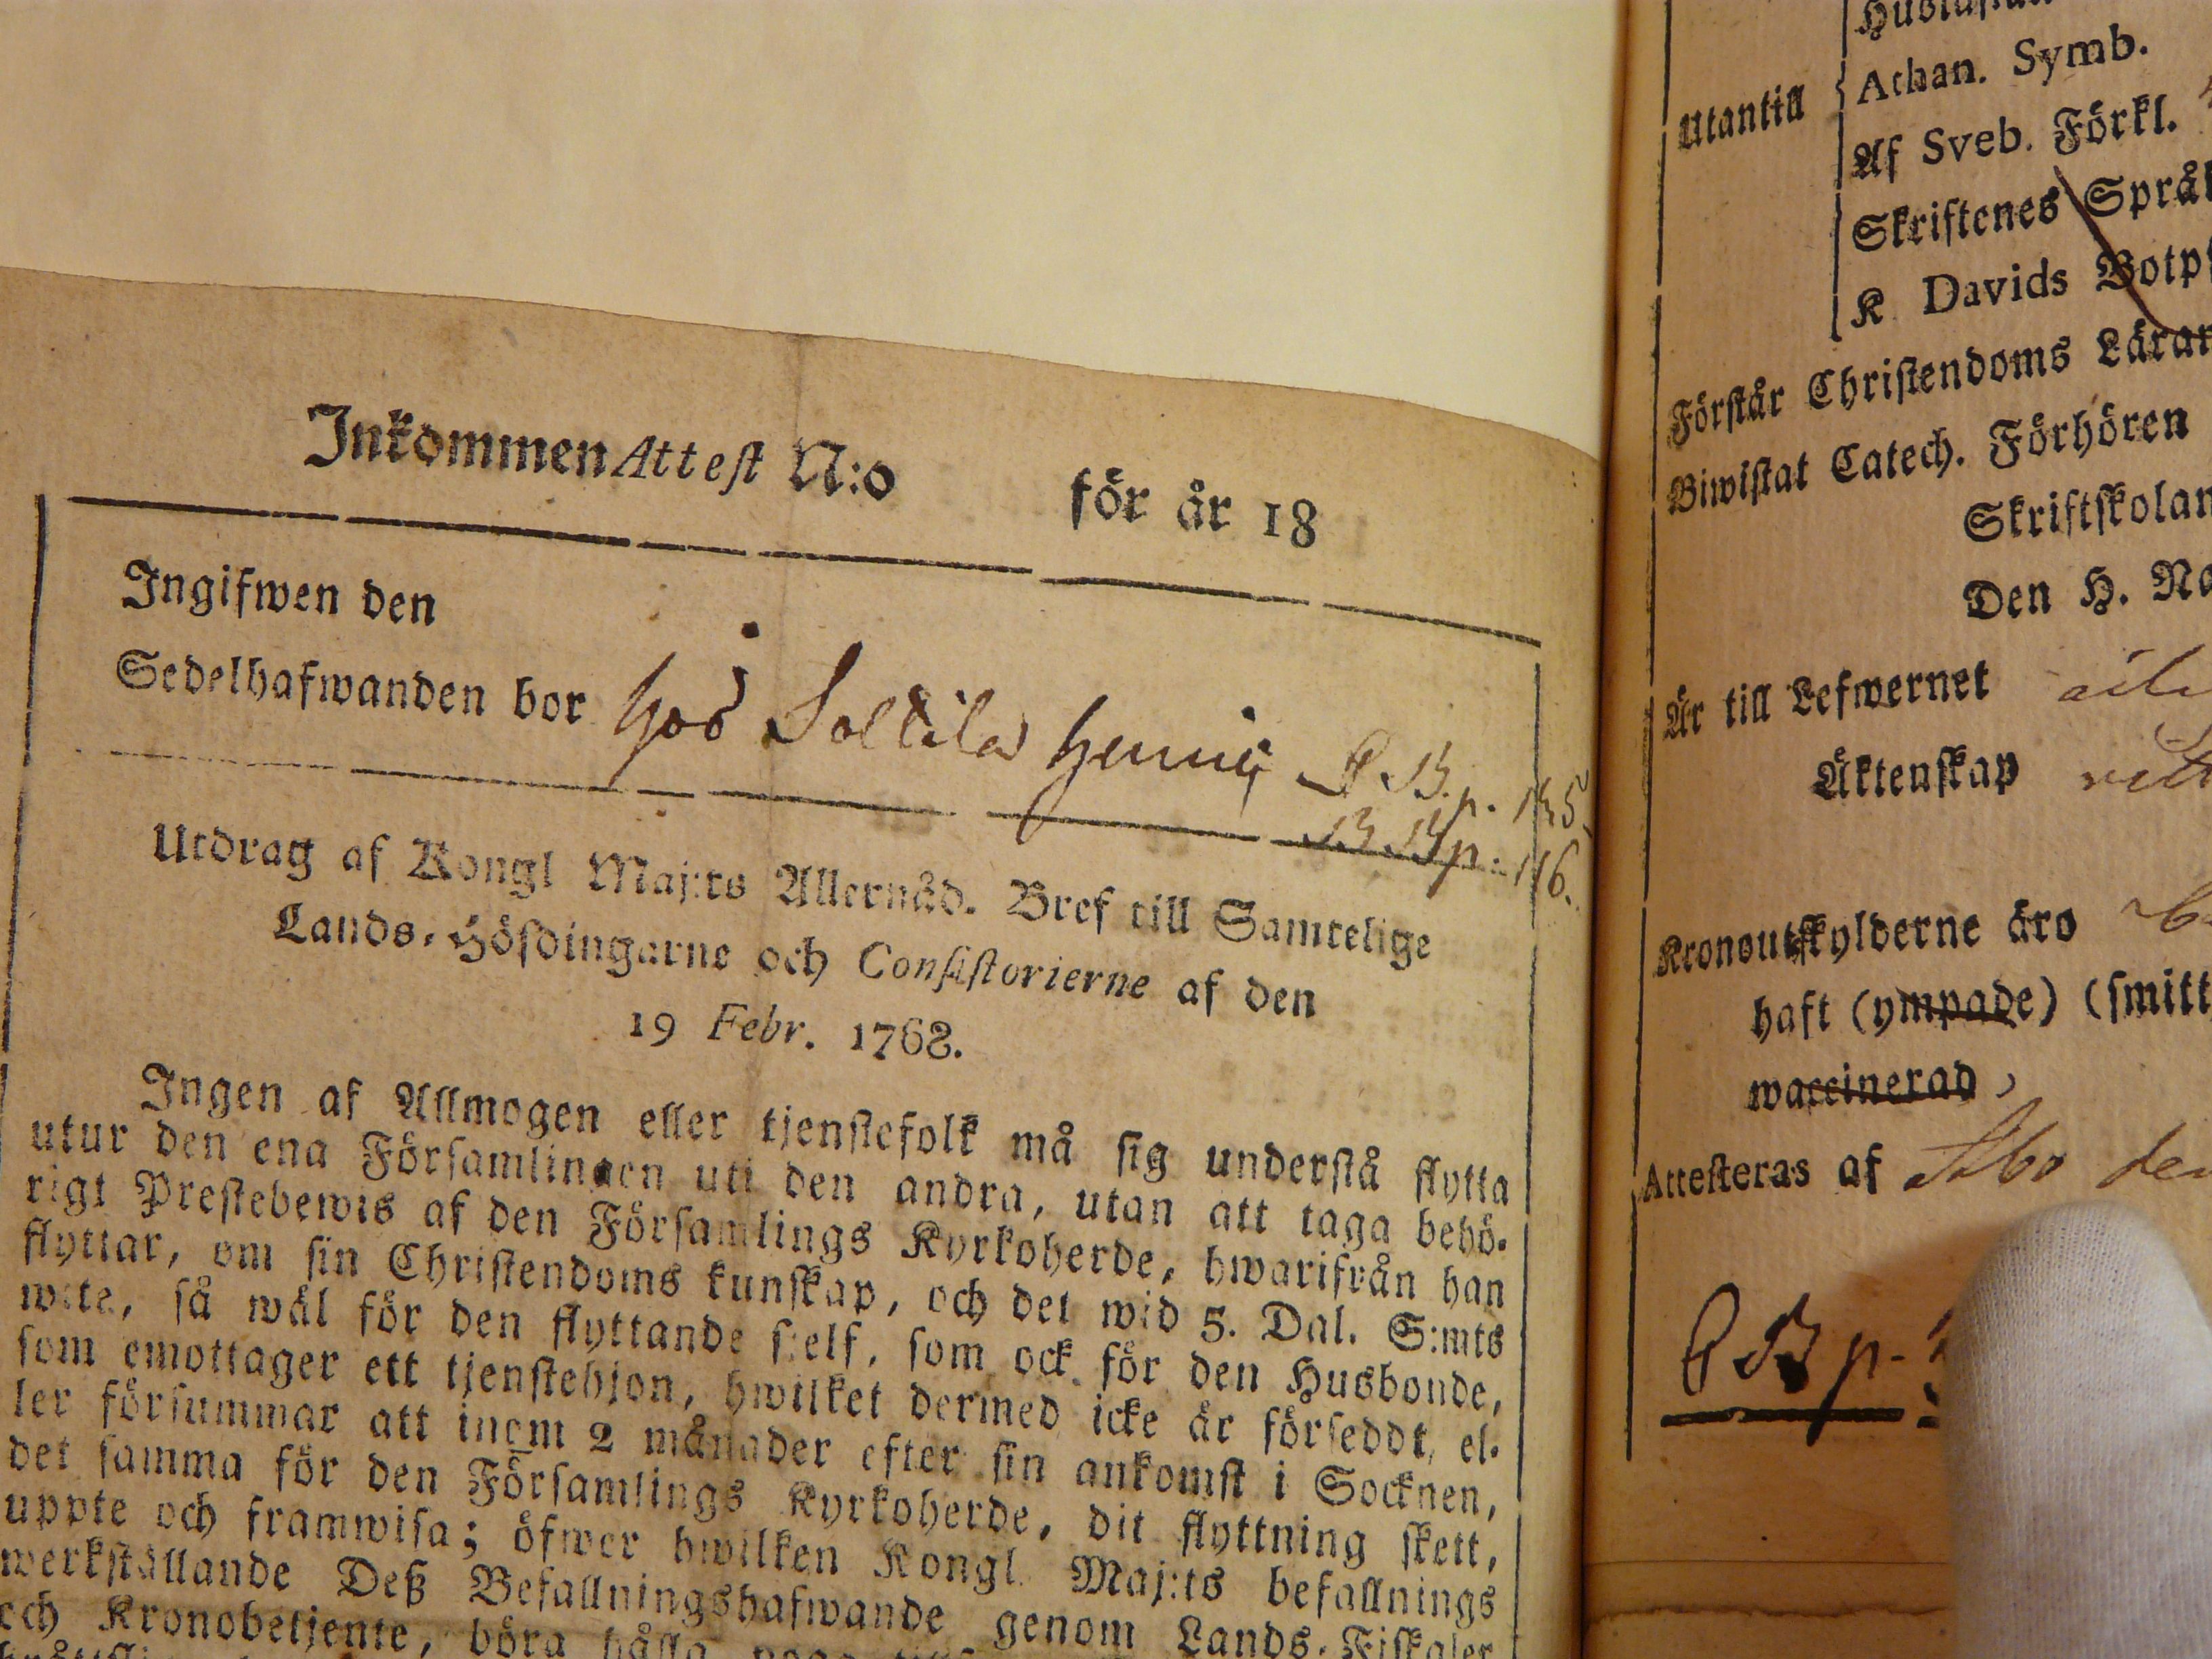 Inkommen Attest N:o för år 18
Ingifwen den
Sedelhafwanden bor hos
P B. p. 145.
B B p. 116.
Utdrag af Kongl Maj:ts Allernåd. Bref till Samtelige
Lands-Höfdingarne och Consistorierne af den
19 Febr. 1768.
Ingen af Allmogen eller tjenstefolk må sig understå flytta
utur den ena Församlingen uti den andra, utan att taga behö-
rigt Prestebewis af den Församlings Kyrkoherde, hwarifrån han
flyttar, om sin Christendoms kunskap, och det wid 5. Dal. S:mts
wite, så wäl för den flyttande sjelf, som ock för den Husbonde,
som emottager ett tjenstehjon, hwilket dermed icke är förseddt, el-
ler försummar att inom 2 månader efter sin ankomst i Socknen,
det samma för den Församlings Kyrkoherde, dit flyttning skett,
uppte och framwisa; öfwer hwilken Kongl. Maj:ts befallnings
werkställande Deß Befallningshafwande genom Lands-Fiskaler
och Kronobetjente, böra hålla
Utantill
Athan. Symb.
Af Sveb. Förkl.
Skriftenes Språk
K Davids Botps
Förstår Christendoms Lärar
Biwistat Catech. Förhören
Skriftskolan
Den H. Na
Är till Lefwernet
Äktenskap
Kronoutskylderne äro
haft (ympade) (smitt
waccinerad,
Attesteras af Åbo den
P B p.